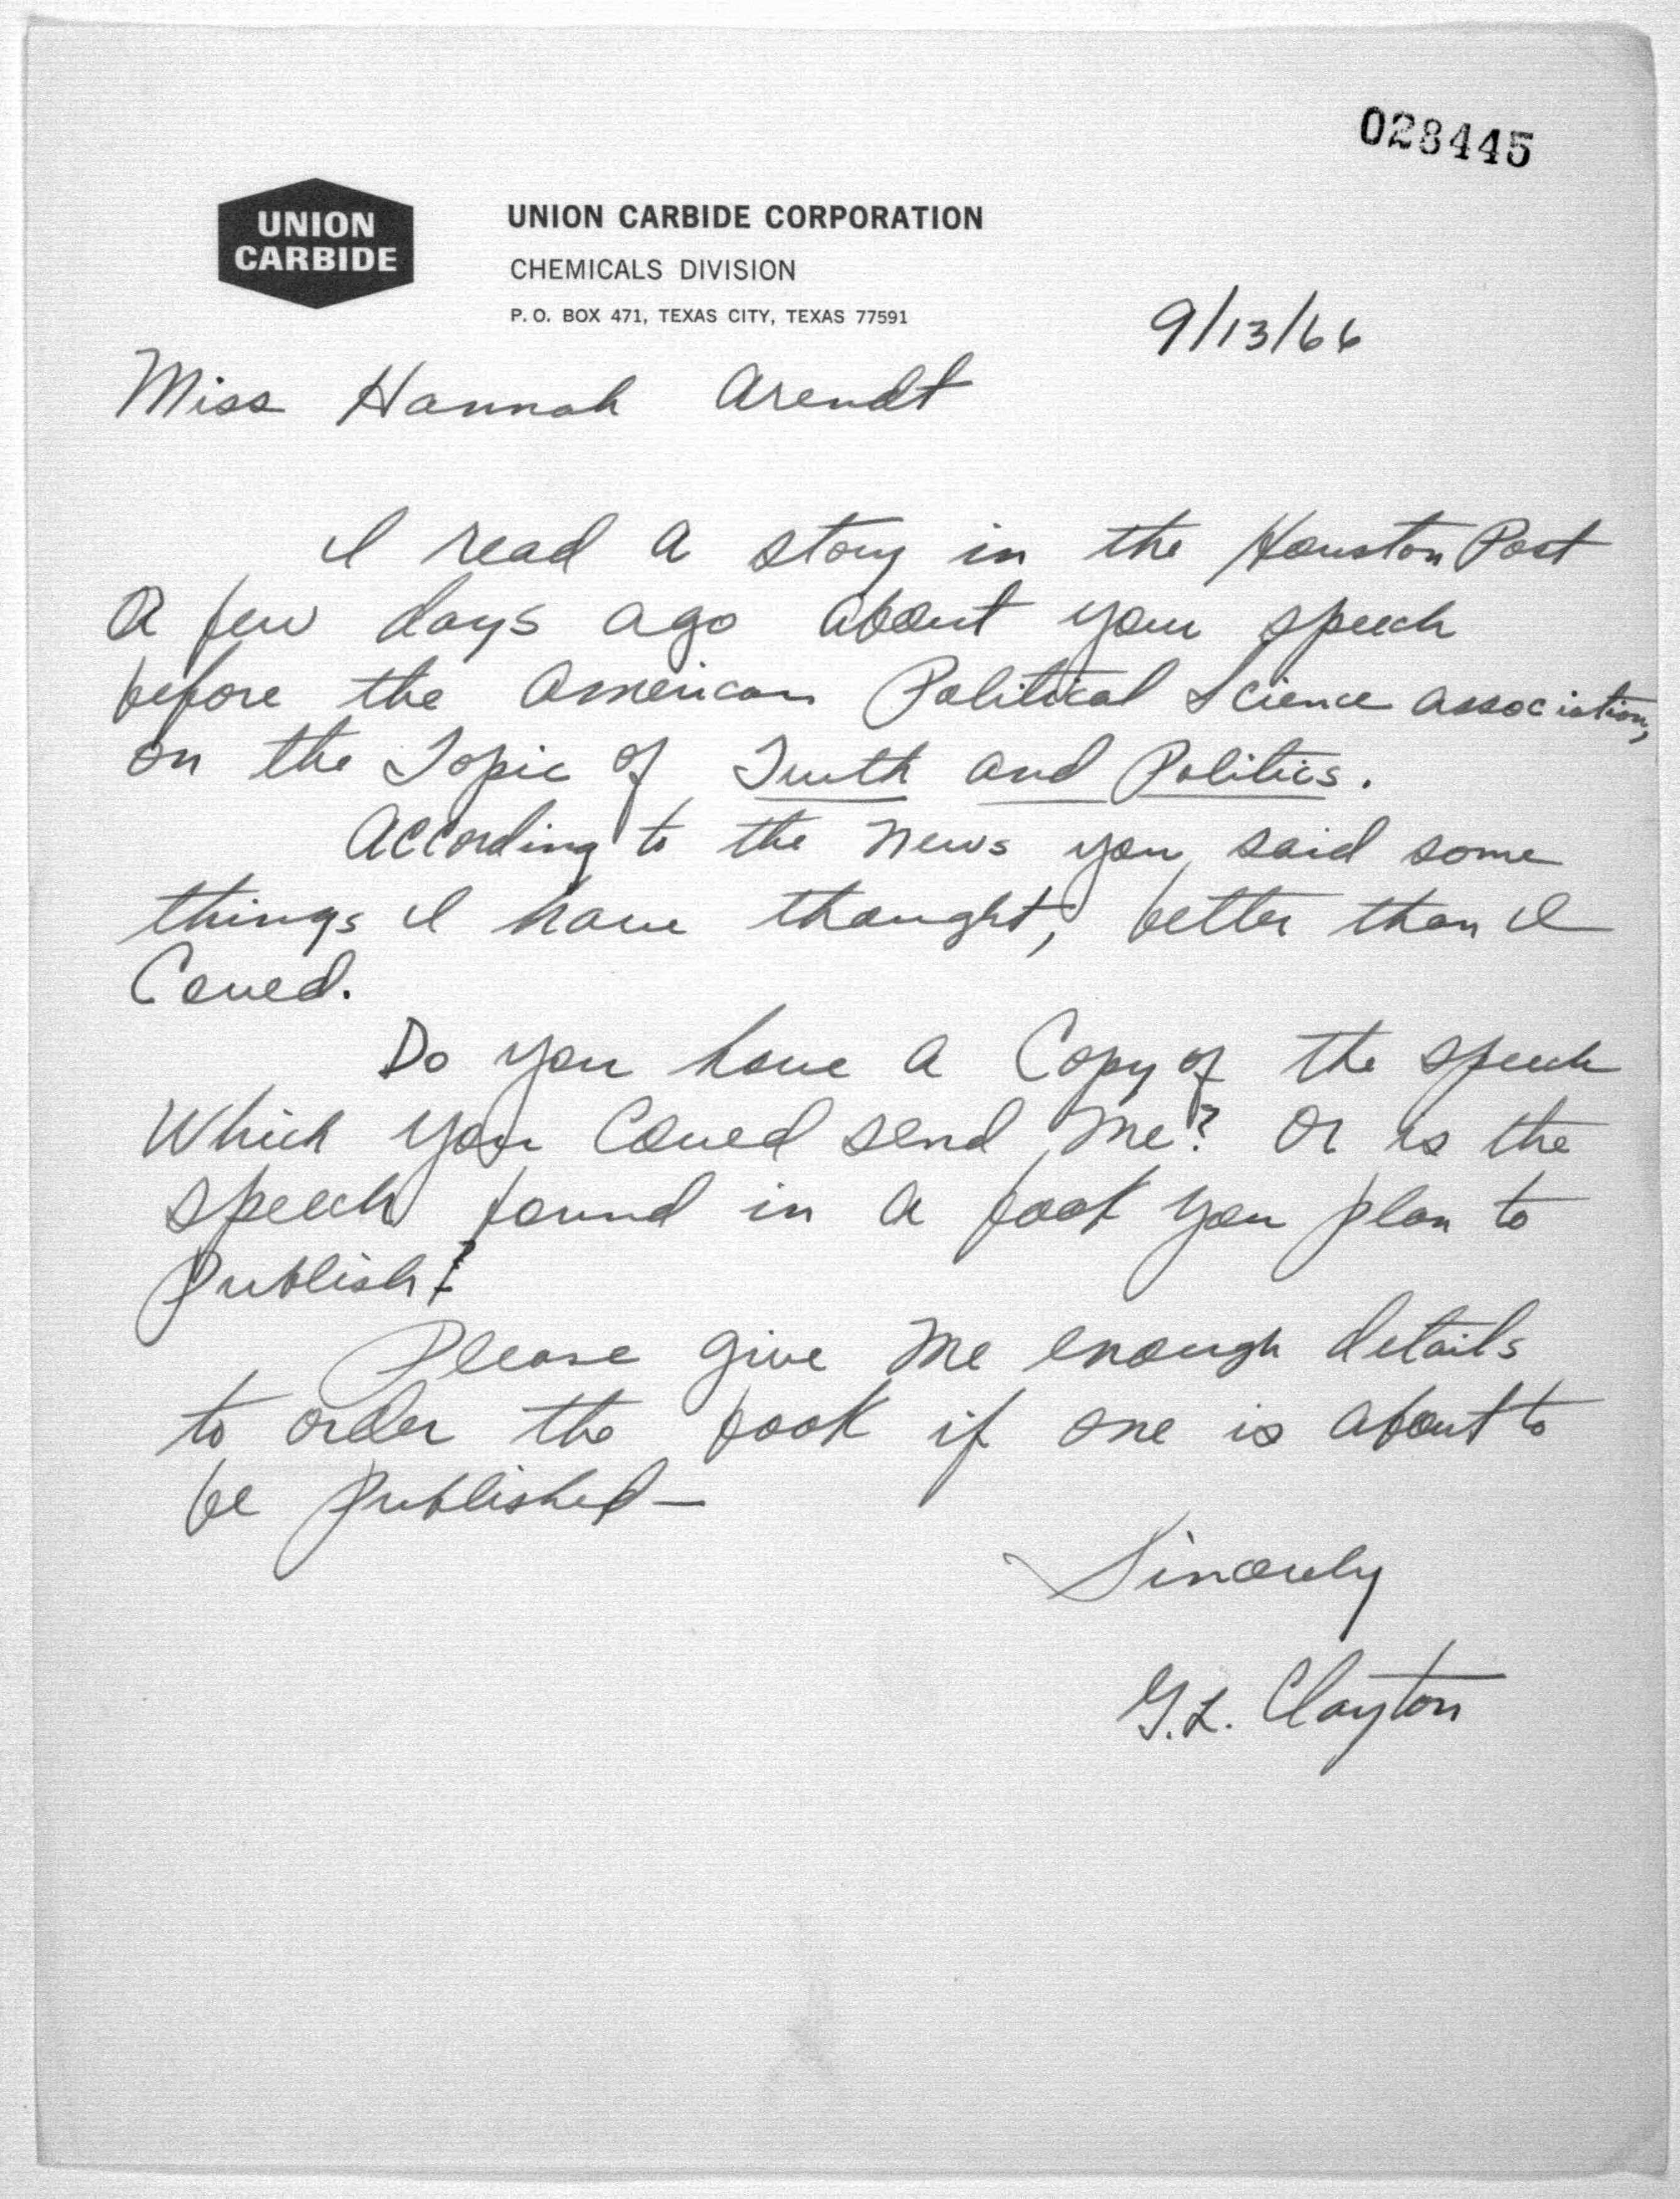 028445
UNION
CARBIDE
UNION CARBIDE CORPORATION
CHEMICALS DIVISION
P. O. BOX 471, TEXAS CITY, TEXAS 77591
9/13/66
Miss Hannah Arendt
I read a story in the Houston Post
a few days ago about your speech
before the American Political Science Association,
on the Topic of Truth and Politics.
According to the News you said some
things I have thought, better than I
Could.
Do you have a Copy of the speech
Which you Could send Me? Or is the
speech found in a book you plan to
Publish?
Please give Me enough details
to order the book if one is about to
be Published—
Sincerely
G.L. Clayton